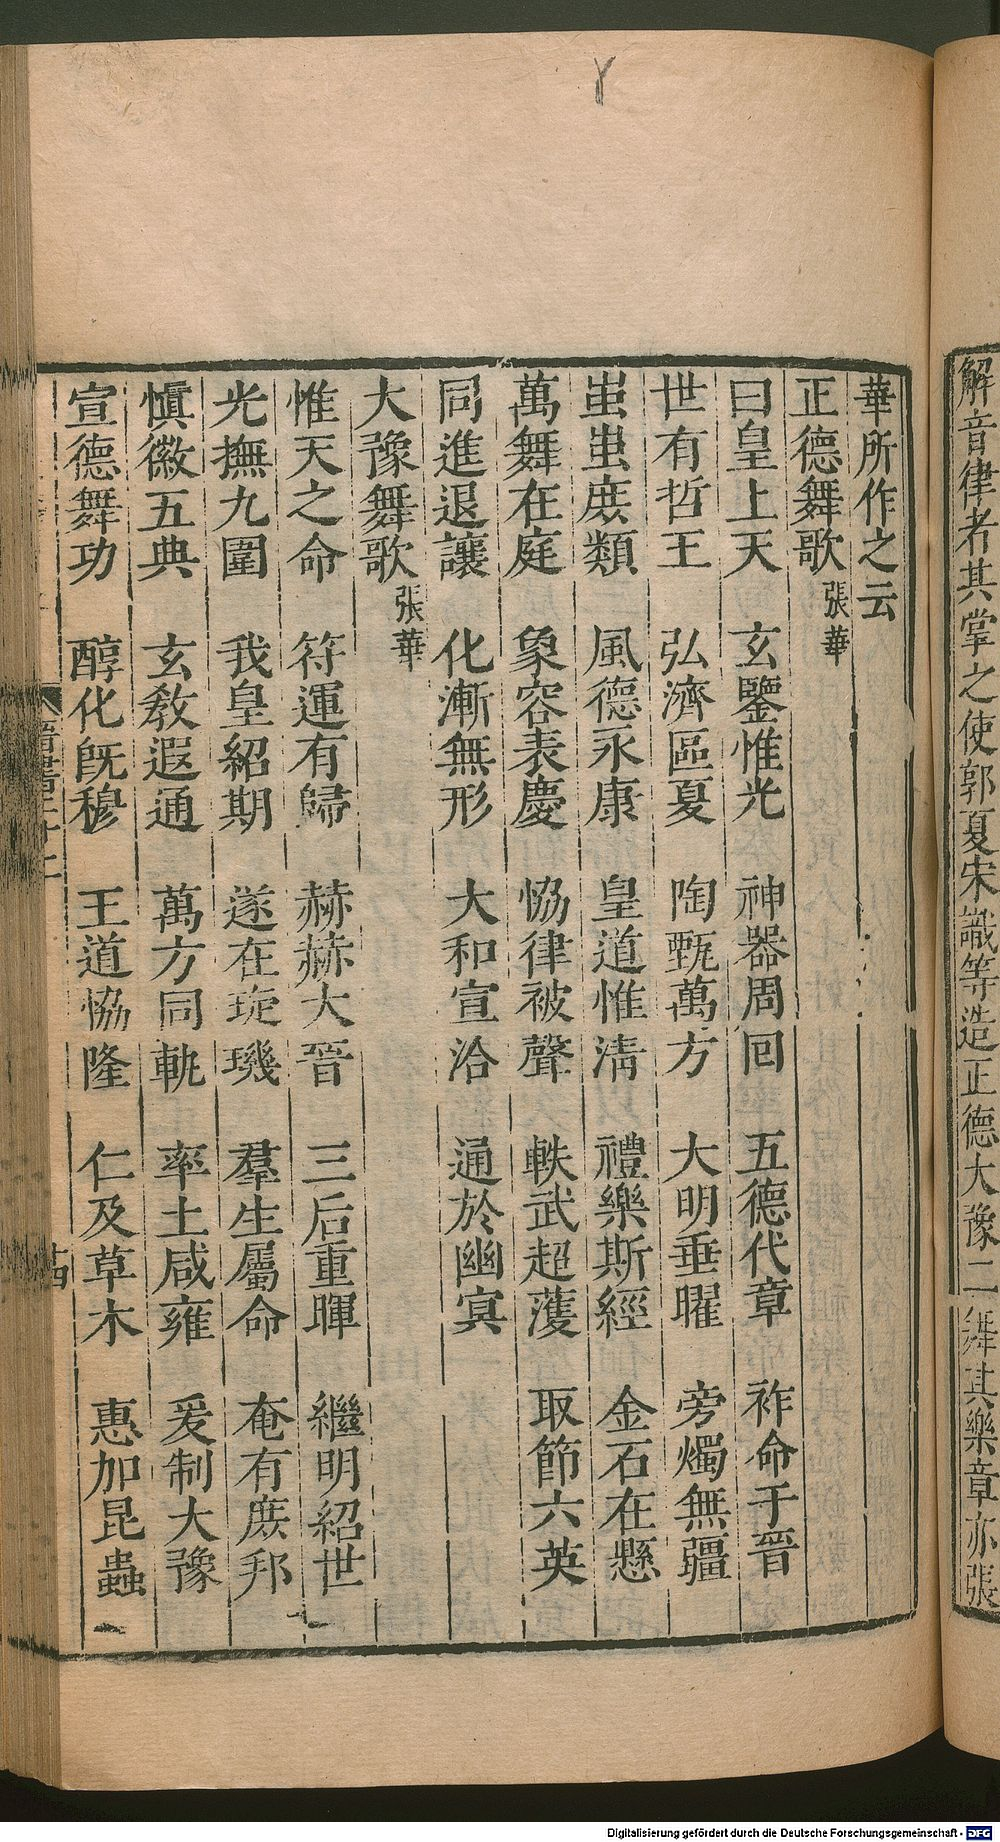 解音律者其掌之使郭夏宋識等造正德大豫二舞其樂章亦張
華所作之云
正德舞歌 張華
曰皇上天 玄鑒惟光 神器周回 五德代章 祚命于晉
世有哲王 弘濟區夏 陶甄萬方 大明垂曜 旁燭無疆
蚩蚩庶類 風德永康 皇道惟清 禮樂斯經 金石在懸
萬舞在庭 象容表慶 恊律被聲 軼武超濩 取節六英
同進退讓 化漸無形 大和宣洽 通於幽冥
大豫舞歌 張華
惟天之命 符運有歸 赫赫大晉 三后重暉 繼明紹世
光撫九圍 我皇紹期 遂在琁璣 羣生屬命 奄有庶邦
慎徽五典 玄敎遐通 萬方同軌 率土咸雍 爰制大豫
宣德舞功 醇化旣穆 王道恊隆 仁及草木 惠加昆蟲
Digitalisierung gefördert durch die Deutsche Forschungsgemeinschaft - DFG